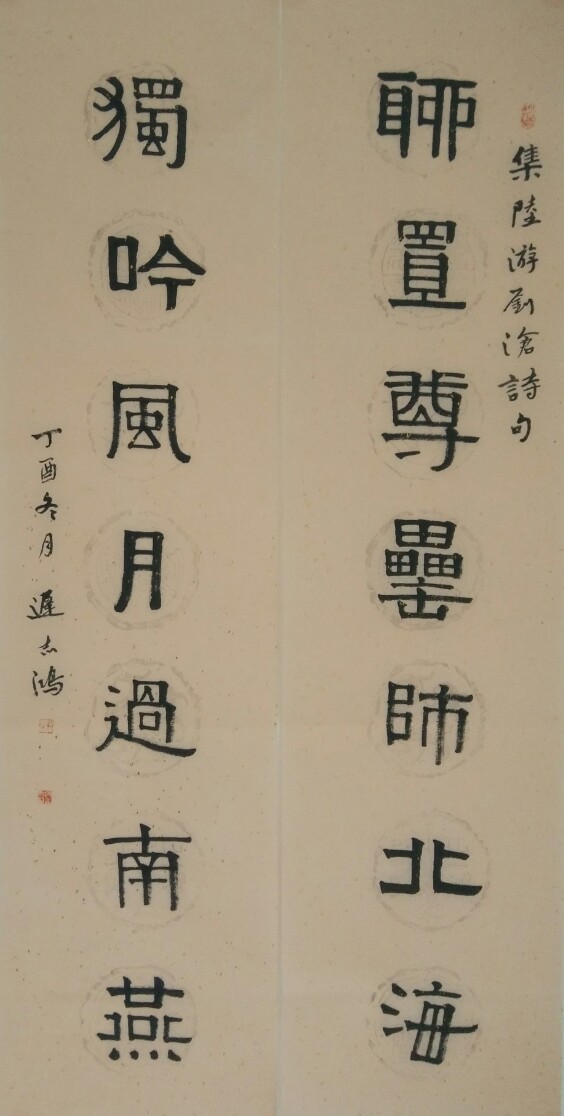 集陸游劉滄詩句
聊置尊罍師北海
獨吟風月過南燕
丁酉冬月 遲志鴻